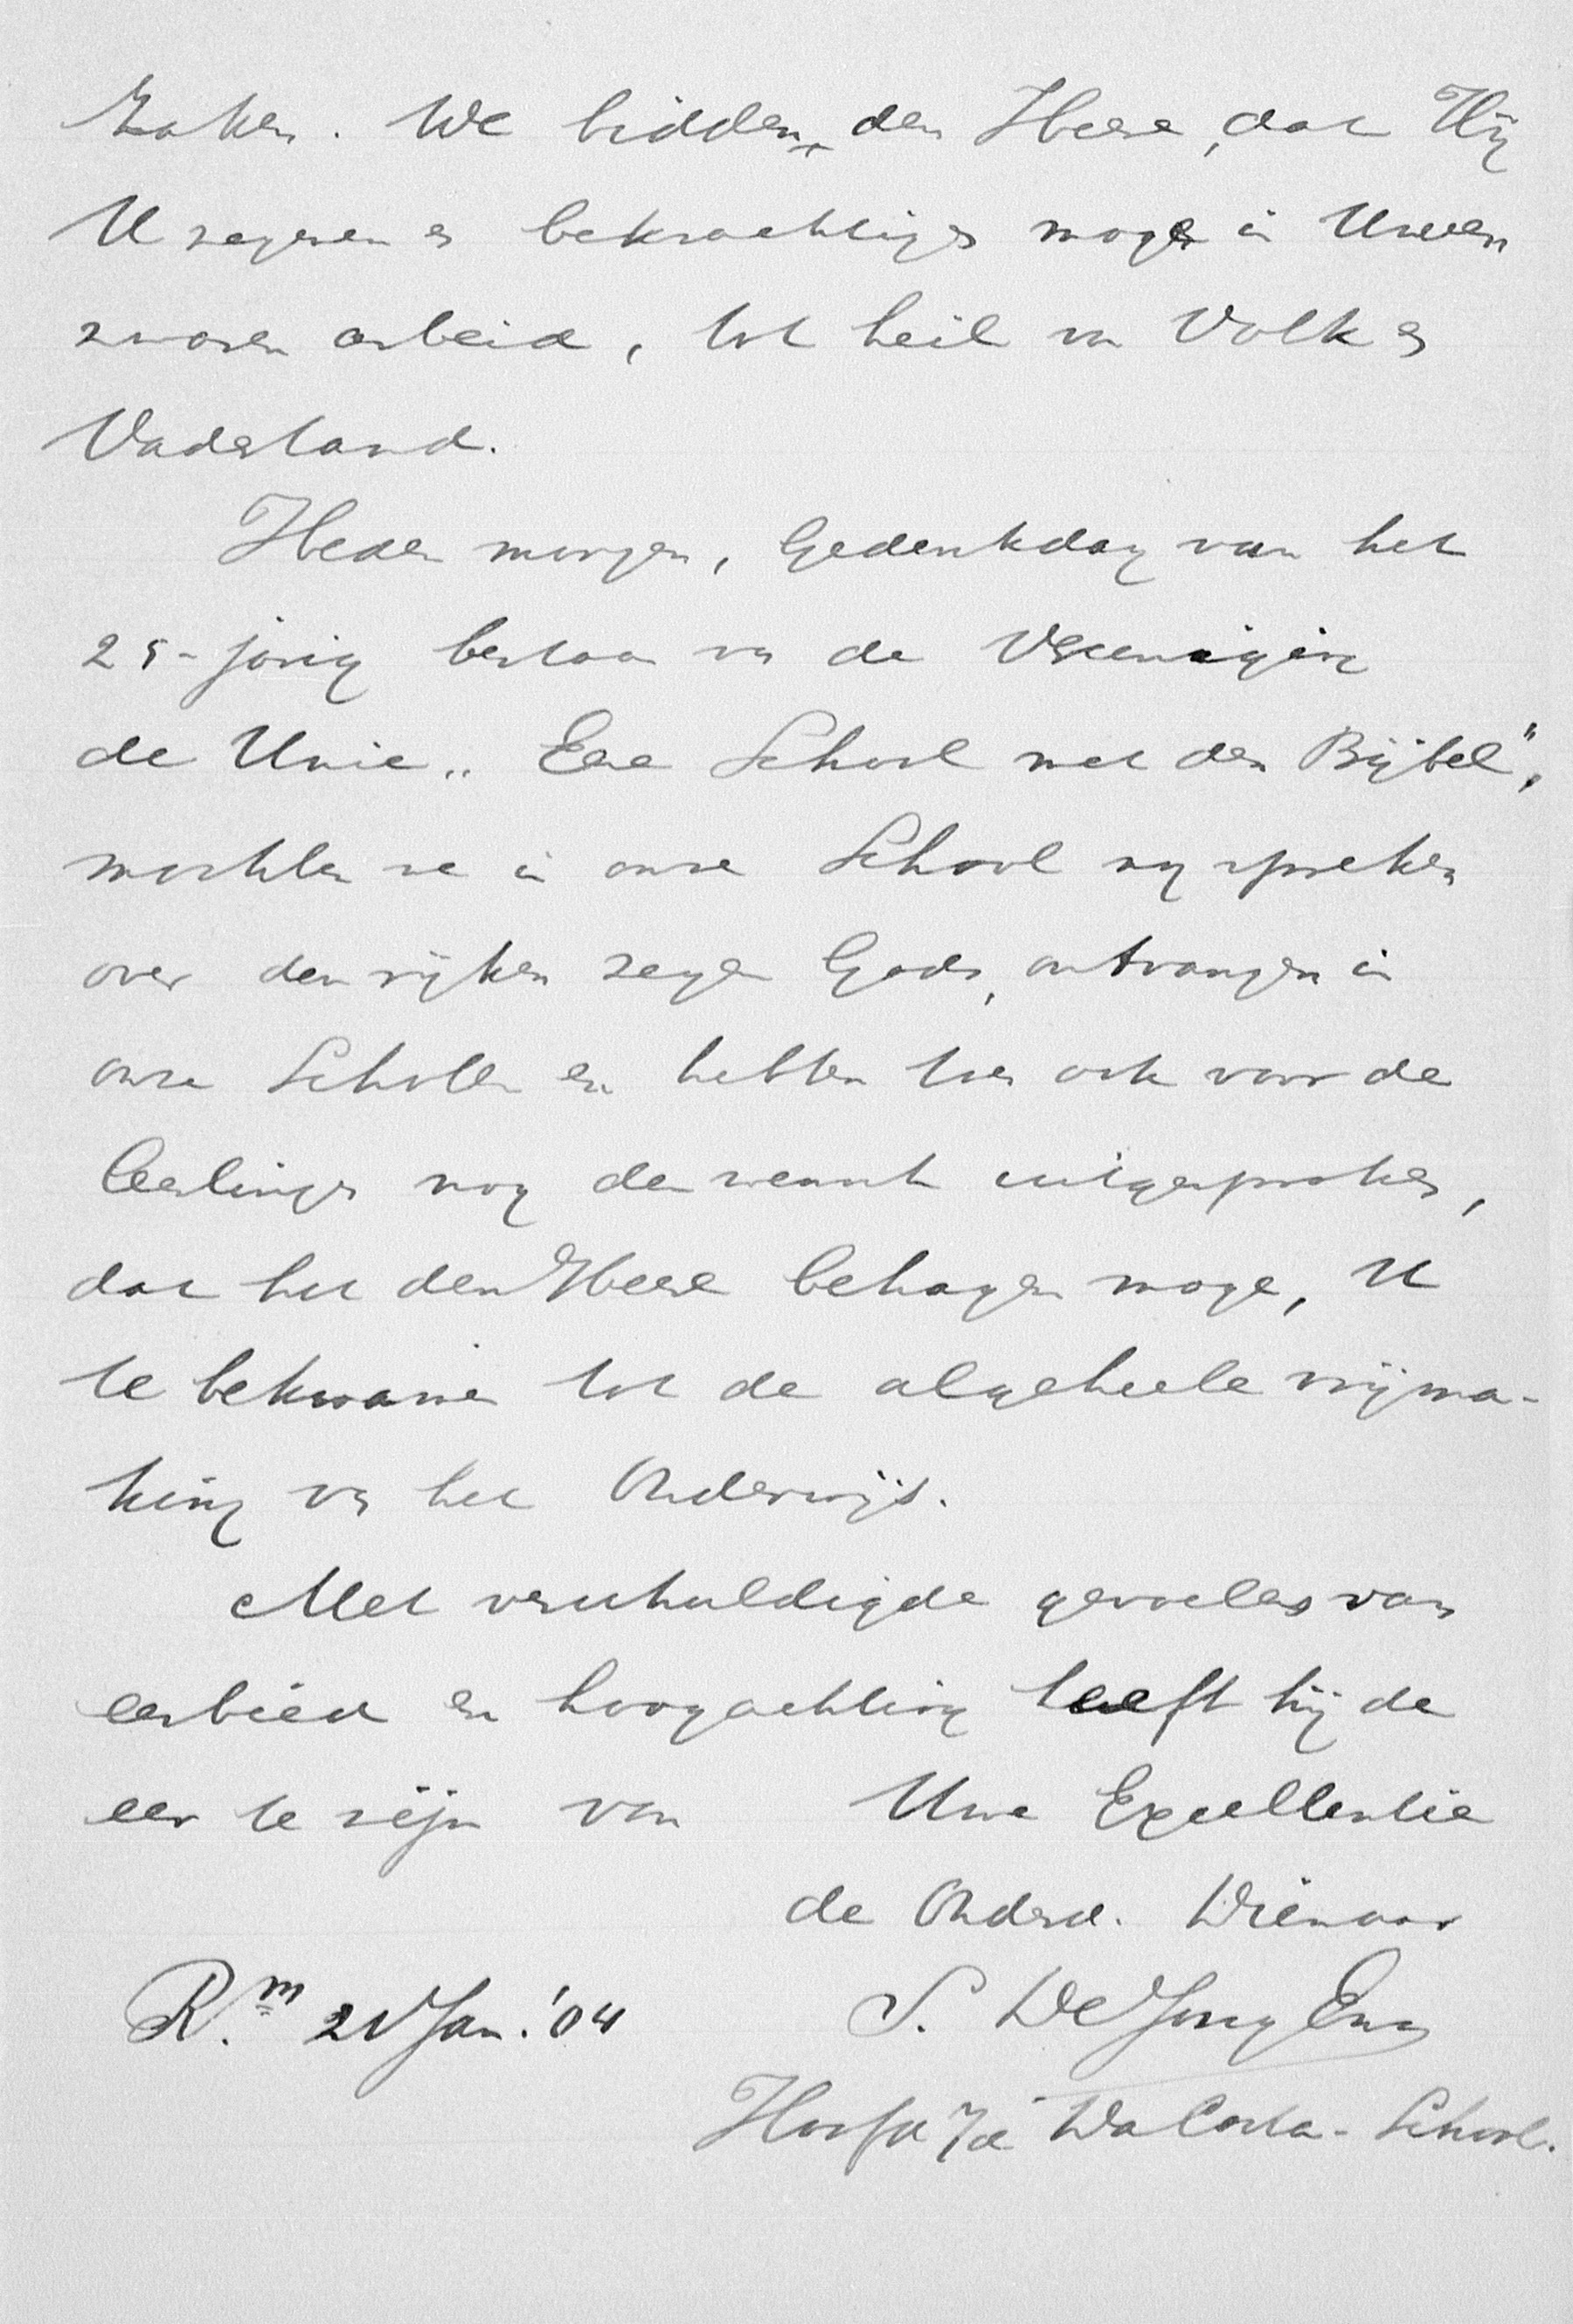 Zaken. We bidden den Heere, dat Hij
U zegenen en bekrachtigen moge in Uwen
zwaren arbeid, tot heil van Volk en
Vaderland.
Heden morgen, Gedenkdag van het
25-jarig bestaan van de Vereeniging
de Unie „Eene School met den Bijbel",
mochten we in onze School nog spreken
over den rijken zegen Gods, ontvangen in
onze Scholen en hebben toen ook voor de
leerlingen nog den wensch uitgesproken,
dat het den Heere behagen moge, U
te bekwamen tot de algeheele vrijma-
king van het Onderwijs.
Met verschuldigde gevoelens van
eerbied en hoogachting heeft hij de
eer te zijn van Uwe Excellentie
de Onderd. Dienaar
R.m 21 Jan. '04 S. De Jong Ezn
Hoofd 7de Da Costa-School.